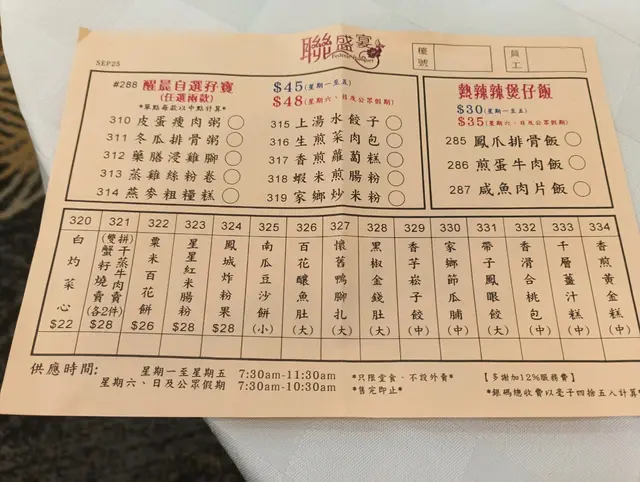 SEP25
聯盛宴
Federal Banquet
檯號
員工
#288 醒晨自選孖寶
(任選兩款)
*單點每款以中點計算*
$45(星期一至五)
$48(星期六、日及公眾假期)
310 皮蛋瘦肉粥
311 冬瓜排骨粥
312 藥膳浸雞腳
313 蒸雞絲粉卷
314 燕麥粗糧糕
315 上湯水餃子
316 生煎菜肉包
317 香煎蘿蔔糕
318 蝦米煎腸粉
319 家鄉炒米粉
熱辣辣煲仔飯
$30(星期一至五)
$35(星期六、日及公眾假期)
285 鳳爪排骨飯
286 煎蛋牛肉飯
287 咸魚肉片飯
320 白灼菜心 $22
321 (雙拼)蟹籽燒賣干蒸牛肉賣(各2件) $28
322 粟米百花餅 $26
323 星星紅米腸粉 $28
324 鳳城炸粉果 $28
325 南瓜豆沙餅(小)
326 百花釀魚肚(大)
327 懷舊鴨腳扎(大)
328 黑椒金錢肚(大)
329 香芋崧子餃(中)
330 家鄉節瓜脯(中)
331 帶子鳳眼餃(大)
332 香滑合桃包(中)
333 千層薑汁糕(中)
334 香煎黃金糕(中)
供應時間:
星期一至星期五 7:30am-11:30am
星期六、日及公眾假期 7:30am-10:30am
*只限堂食、不設外賣*
*售完即止*
【多謝加12%服務費】
*銀碼總收費以毫子四捨五入計算*